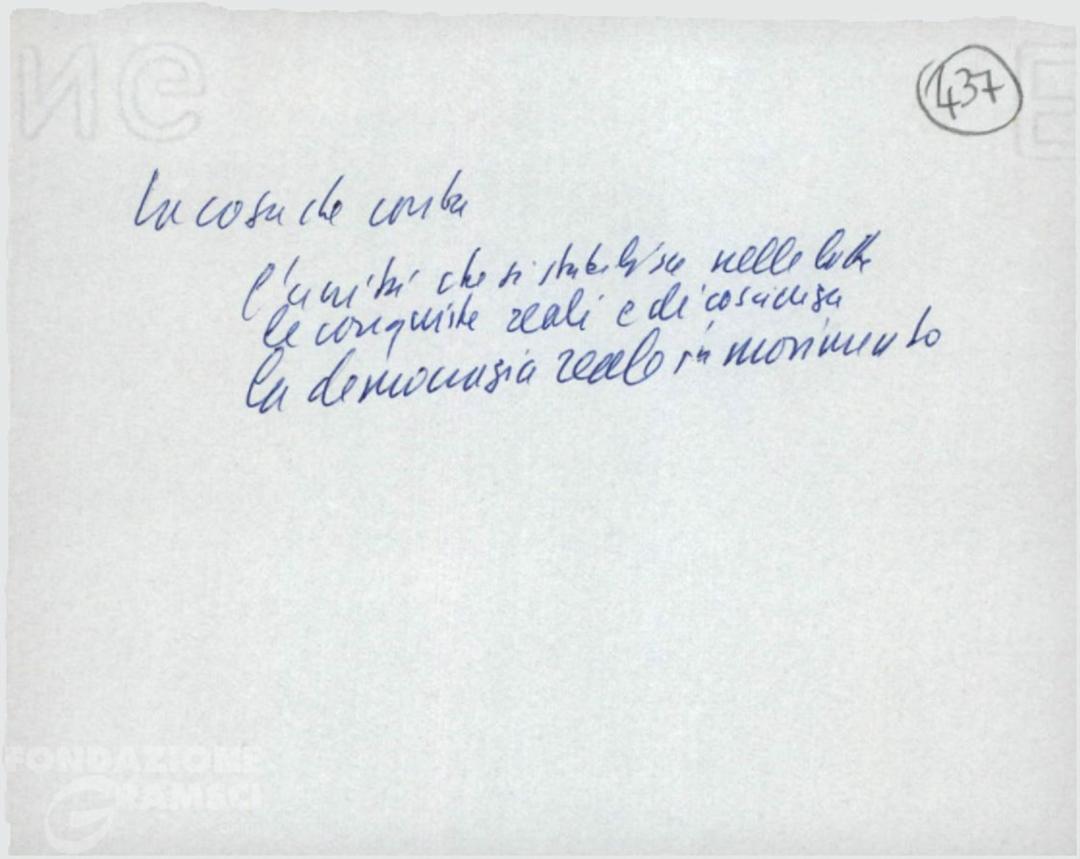 437
La cosa che conta
l'unità che si stabilisce nelle lotte
le conquiste reali e di coscienza
la democrazia reale in movimento
FONDAZIONE
GRAMSCI